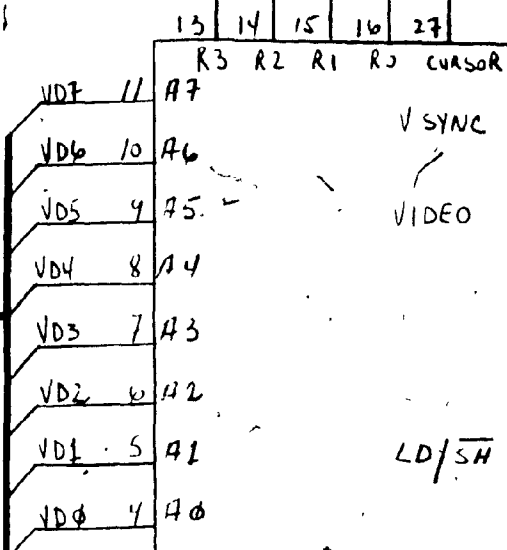 13 14 15 16 27
R3 R2 R1 R0 CURSOR
VD7 11 A7
V SYNC
VD6 10 A6
VD5 9 A5
VIDEO
VD4 8 A4
VD3 7 A3
VD2 6 A2
VD1 5 A1
LD/SH
VD0 4 A0